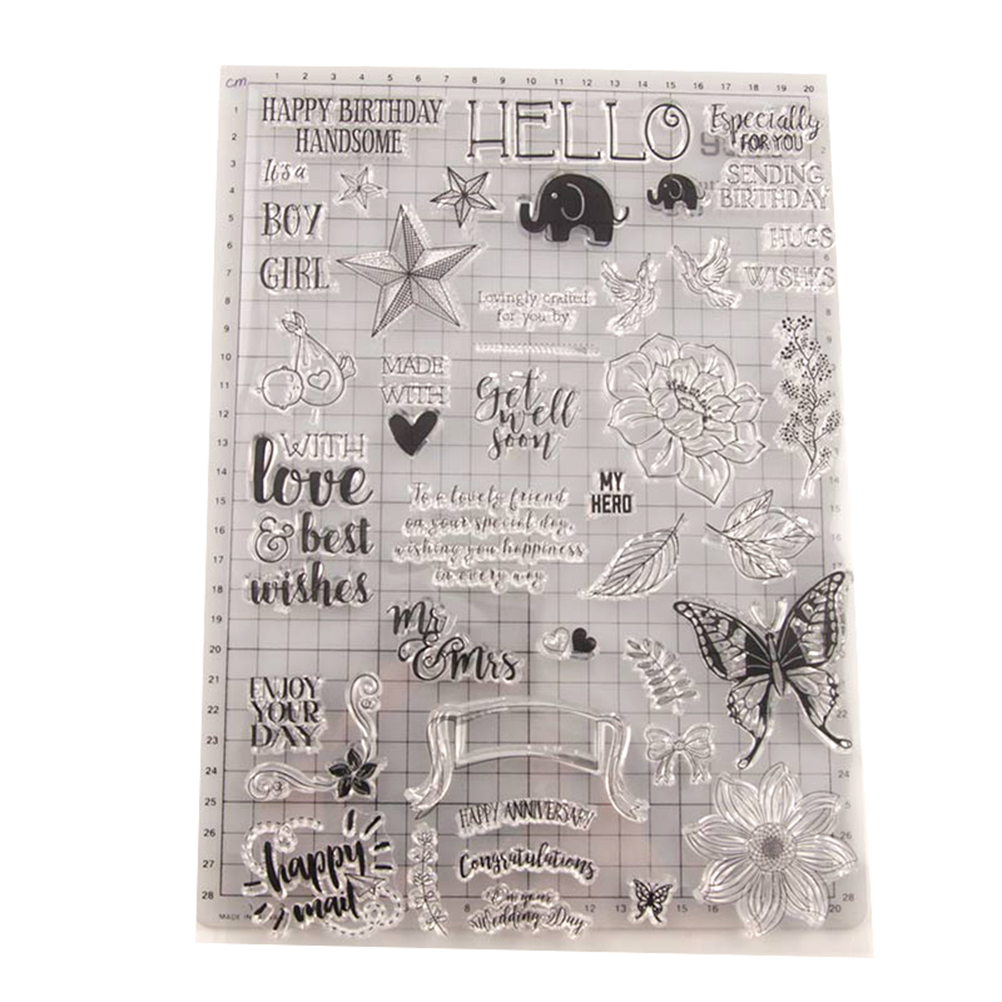 cm
1 2 3 4 5 6 7 8 9 10 11 12 13 14 15 16 17 18 19 20
HAPPY BIRTHDAY
HANDSOME
HELLO
Especially
FOR YOU
It's a
BOY
GIRL
SENDING
BIRTHDAY
HUGS
WISHES
Lovingly crafted
for you by
MADE
WITH
Get
well
soon
WITH
love
& best
wishes
MY
HERO
To a lovely friend
on your special day,
wishing you happiness
in every way
Mr
& Mrs
ENJOY
YOUR
DAY
HAPPY ANNIVERSARY
Congratulations
On your
Wedding Day
happy
mail
1 2 3 4 5 6 7 8 9 10 11 12 13 14 15 16 17 18 19 20 21 22 23 24 25 26 27 28
MADE IN